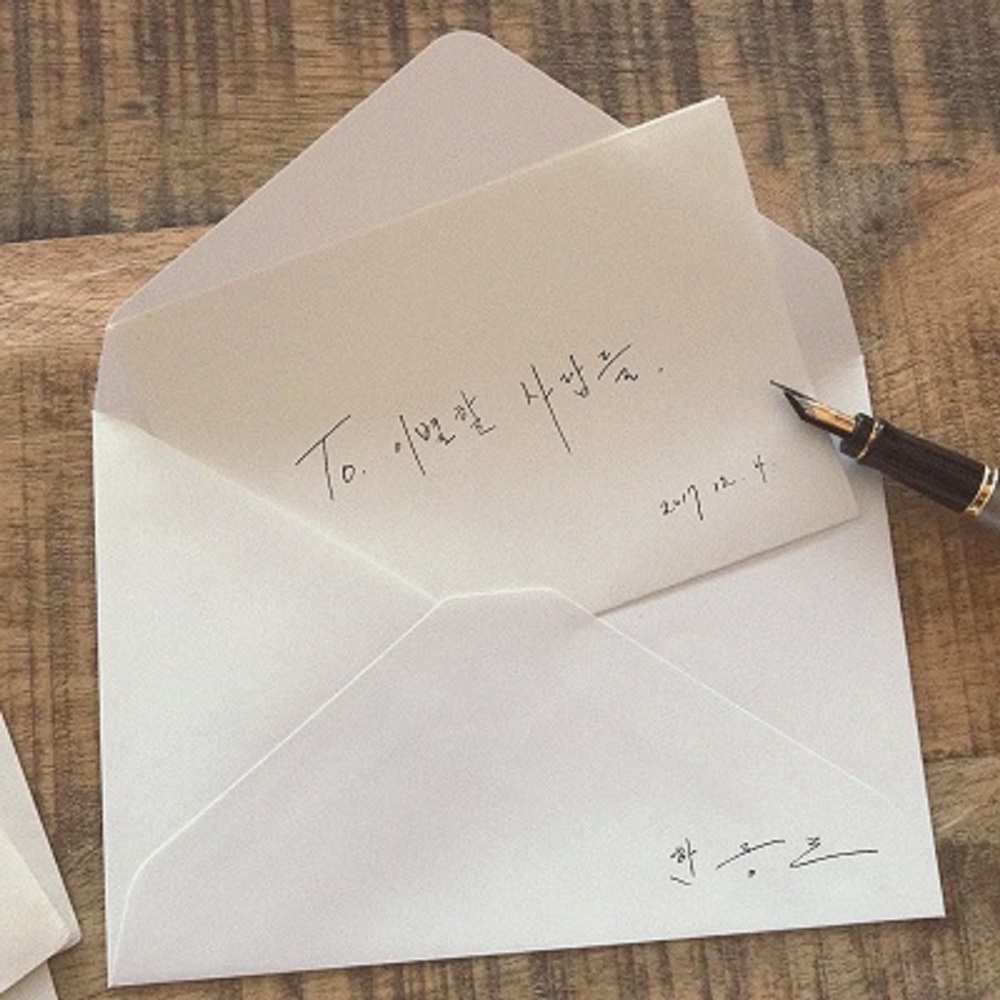 To. 이별할 사람들.
2017 12. 4
한 동 근